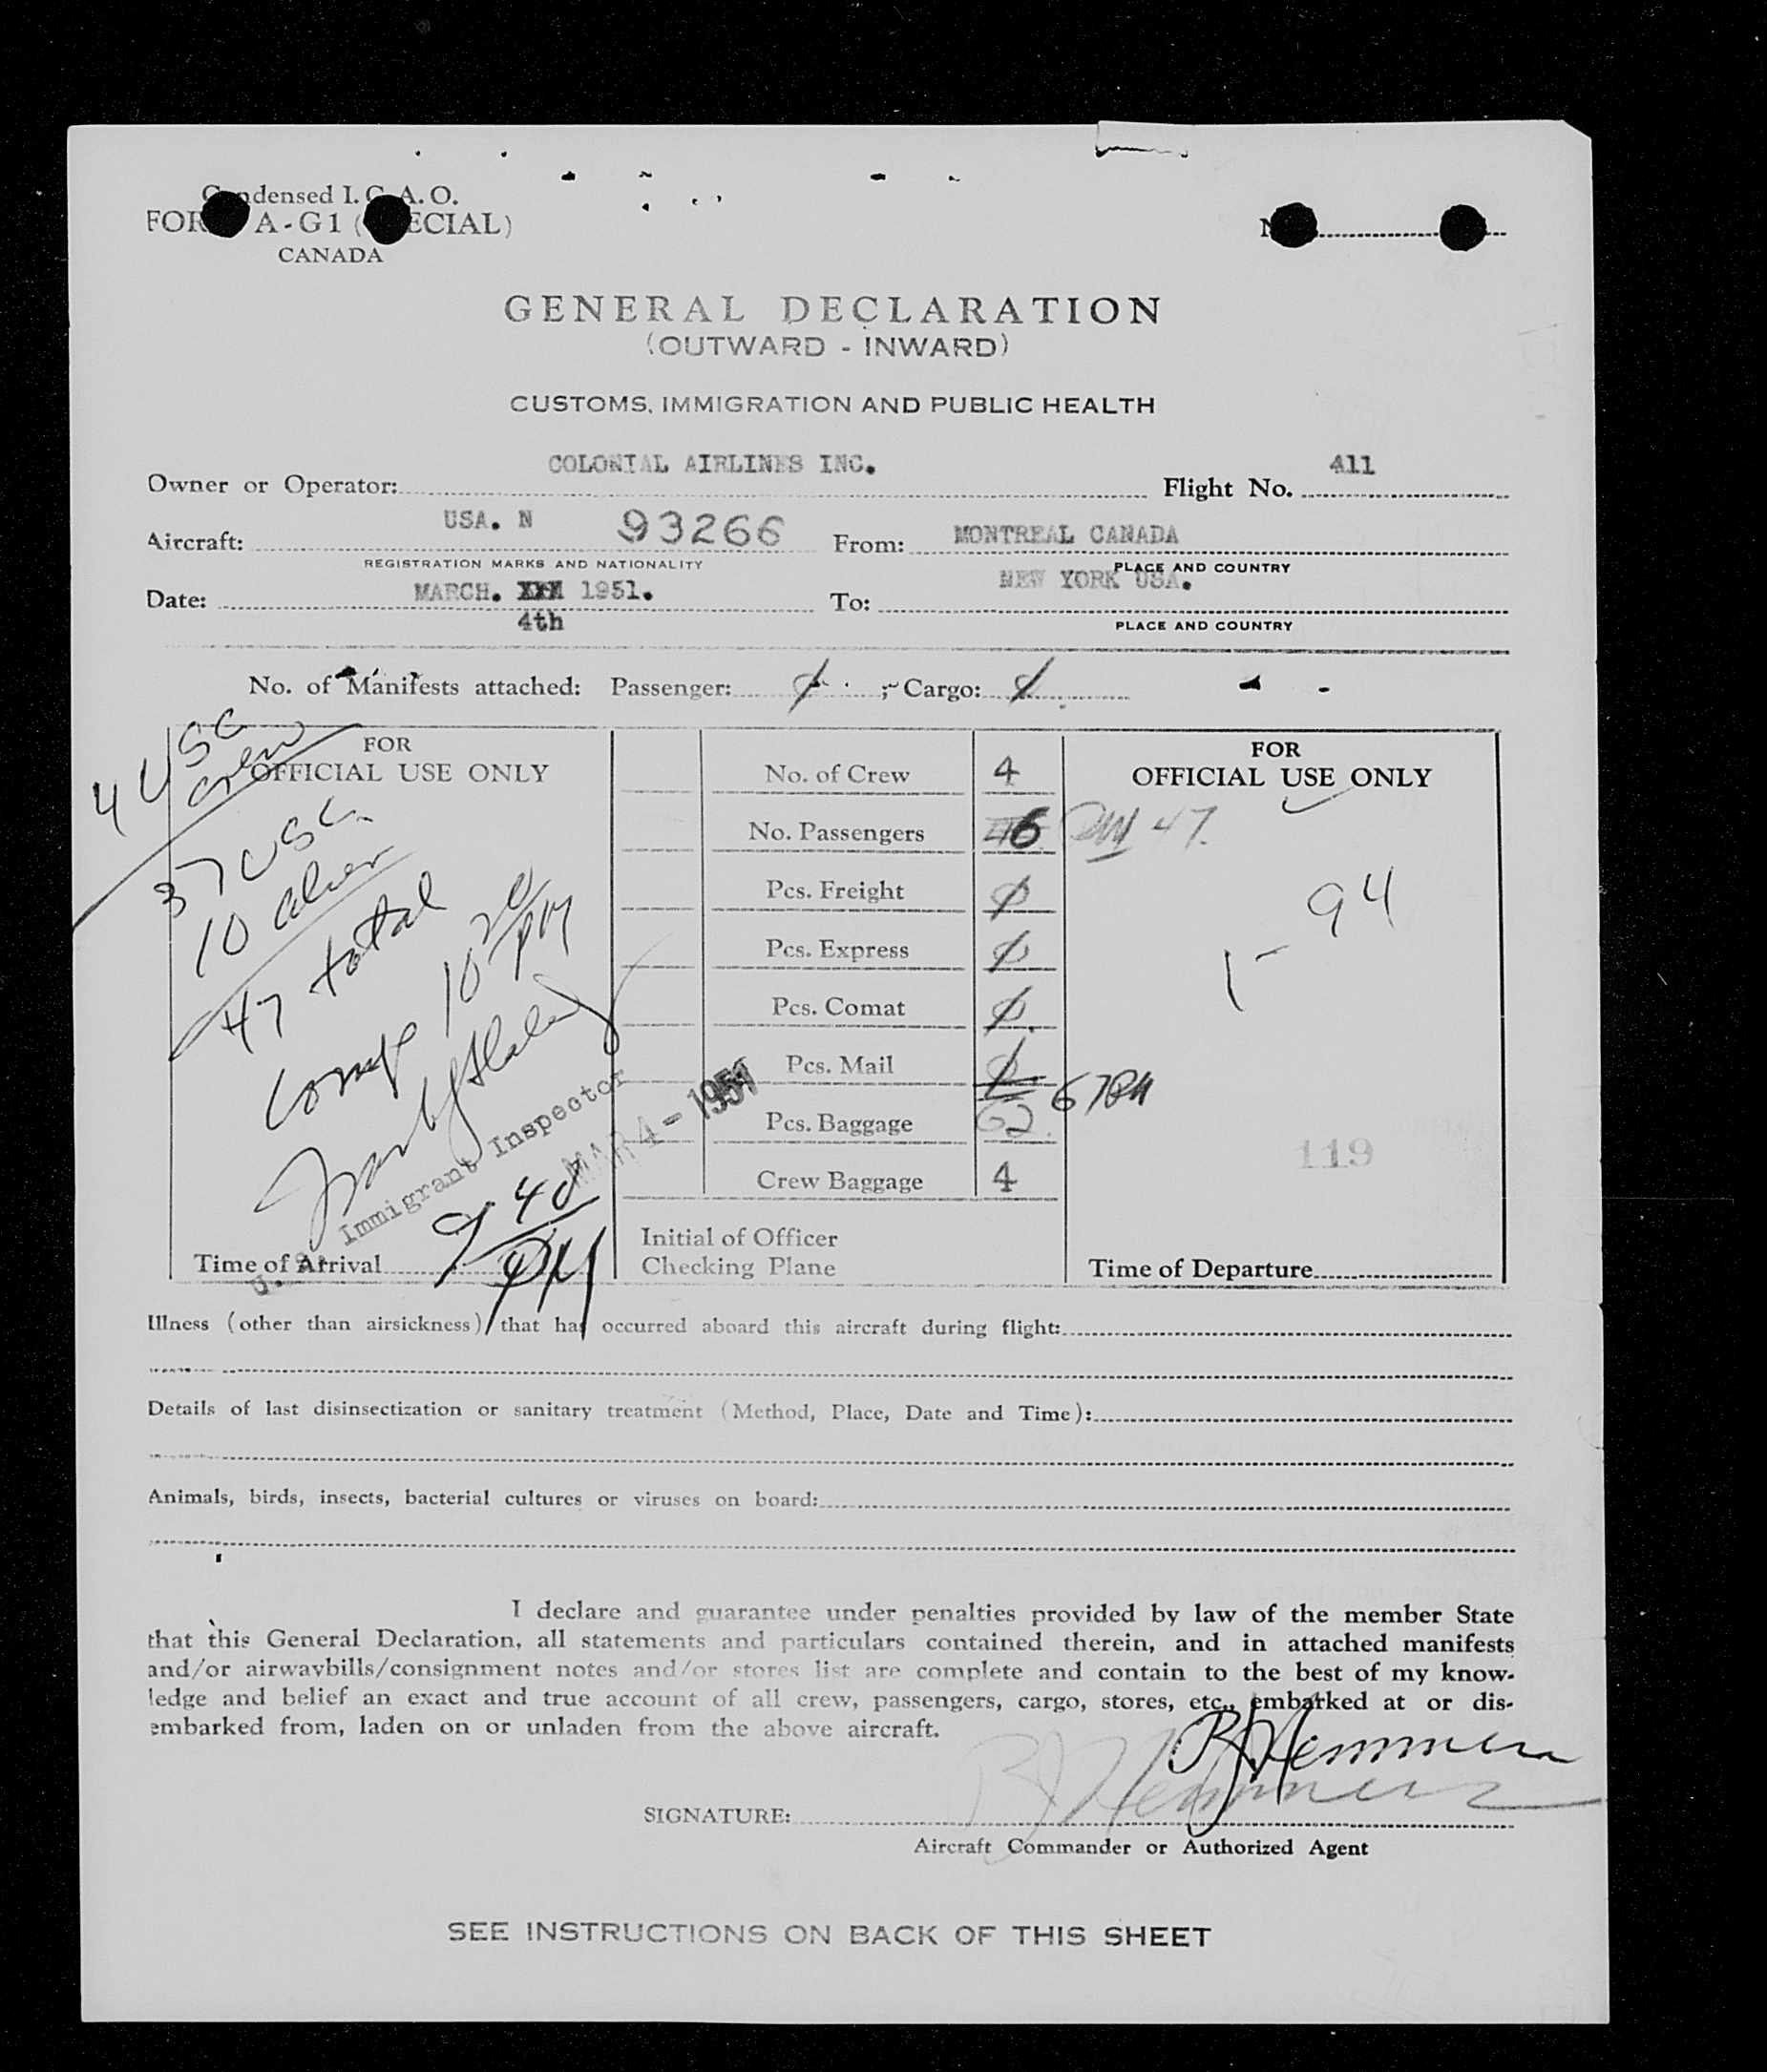 Condensed I.C.A.O.
FORM A-G1 (SPECIAL)
CANADA
GENERAL DECLARATION
(OUTWARD - INWARD)
CUSTOMS, IMMIGRATION AND PUBLIC HEALTH
Owner or Operator: COLONIAL AIRLINES INC. Flight No. 411
Aircraft: USA. N 93266 From: MONTREAL CANADA
REGISTRATION MARKS AND NATIONALITY PLACE AND COUNTRY
Date: MARCH. 1951. To: NEW YORK USA.
4th PLACE AND COUNTRY
No. of Manifests attached: Passenger: ; Cargo:
FOR
OFFICIAL USE ONLY
4 USC
crew
37 USC
10 alien
47 total
Comp 10 20 PM
U.S. Immigrant Inspector
MAR 4 - 1951
Time of Arrival 9 40 PM
No. of Crew 4
No. Passengers 46 47.
Pcs. Freight 0
Pcs. Express 0
Pcs. Comat 0
Pcs. Mail
Pcs. Baggage 62
Crew Baggage 4
Initial of Officer
Checking Plane
FOR
OFFICIAL USE ONLY
1-94
119
Time of Departure
Illness (other than airsickness) that has occurred aboard this aircraft during flight:
Details of last disinsectization or sanitary treatment (Method, Place, Date and Time):
Animals, birds, insects, bacterial cultures or viruses on board:
I declare and guarantee under penalties provided by law of the member State
that this General Declaration, all statements and particulars contained therein, and in attached manifests
and/or airwaybills/consignment notes and/or stores list are complete and contain to the best of my know-
ledge and belief an exact and true account of all crew, passengers, cargo, stores, etc., embarked at or dis-
embarked from, laden on or unladen from the above aircraft.
SIGNATURE:
Aircraft Commander or Authorized Agent
SEE INSTRUCTIONS ON BACK OF THIS SHEET